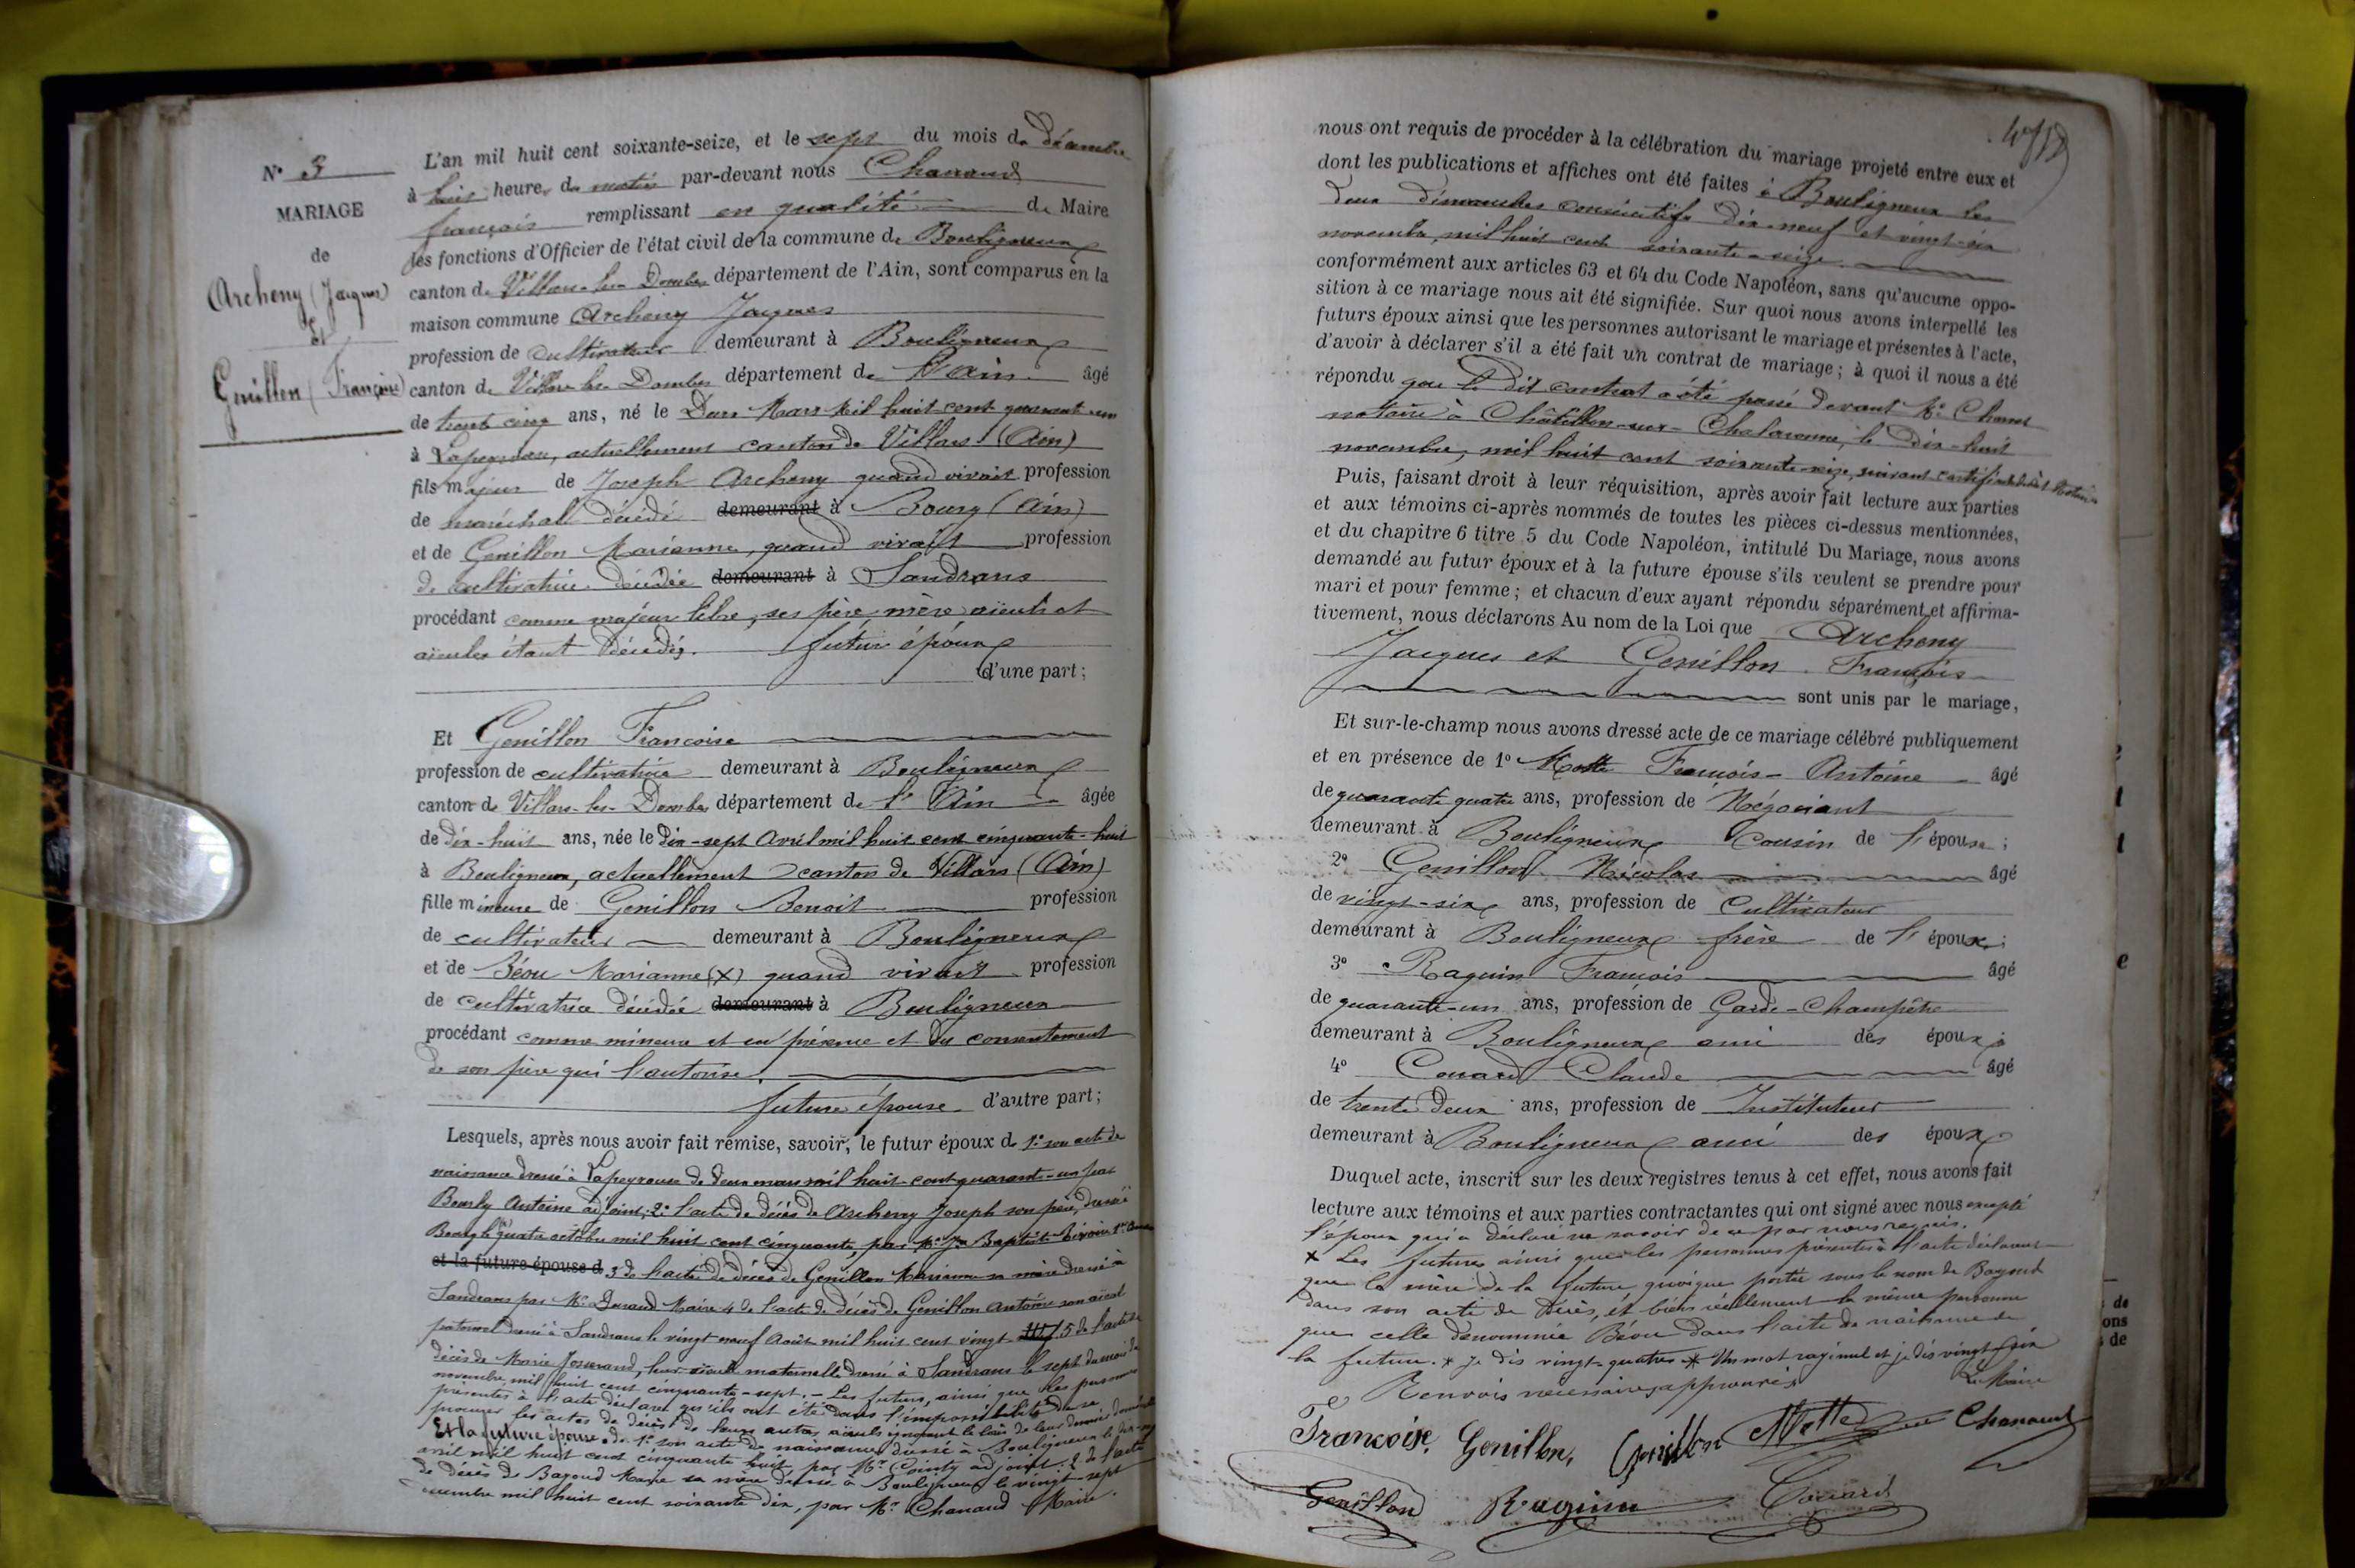 N° 3
MARIAGE
de
Archeny (Jacques)
Et
Genillon (Françoise)
L'an mil huit cent soixante-seize, et le sept du mois de décembre
à huit heures du matin par-devant nous Chanaud
françois remplissant en qualité de Maire
les fonctions d'Officier de l'état civil de la commune de Bouligneux
canton de Villars-les-Dombes département de l'Ain, sont comparus en la
maison commune Archeny Jacques
profession de cultivateur demeurant à Bouligneux
canton de Villars les Dombes département de l'Ain âgé
de trente cinq ans, né le Deux Mars Mil huit cent quarante un
à Lapeyrouse, actuellement canton de Villars (Ain)
fils majeur de Joseph Archeny quand vivait profession
de maréchal décédé demeurant à Bourg (Ain)
et de Genillon Marianne, quand vivait profession
de cultivatrice décédée demeurant à Sandrans
procédant comme majeur libre, ses père, mère aïeuls et
aïeules étant décédés. futur époux
d'une part;
Et Genillon Francoise
profession de cultivatrice demeurant à Bouligneux
canton de Villars-les-Dombes département de l'Ain âgée
de dix-huit ans, née le dix-sept Avril mil huit cent cinquante-huit
à Bouligneux, actuellement canton de Villars (Ain)
fille mineure de Genillon Benoit profession
de cultivateur demeurant à Bouligneux
et de Béou Marianne (X) quand vivait profession
de cultivatrice décédée demeurant à Bouligneux
procédant comme mineure et en présence et du consentement
de son père qui l'autorise.
future épouse d'autre part;
Lesquels, après nous avoir fait remise, savoir, le futur époux d 1° son acte de
naissance dressé à Lapeyrouse le deux mars mil huit-cent-quarante-un par
Antoine adjoint; 2° l'acte de décès de Archeny Joseph son père, dressé à
Bourg le quatre octobre mil huit cent cinquante, par Mr Jn Baptiste
et la future épouse d 3° de l'acte de décès de Genillon Marianne sa mère dressé à
Sandrans par Mr Durand Maire 4° de l'acte de décès de Genillon Antoine son aïeul
paternel dressé à Sandrans le vingt neuf Août mil huit cent vingt 5° de l'acte de
décès de Marie Josserand, leur aïeule maternelle dressé à Sandrans le sept du mois de
novembre mil huit cent cinquante-sept. - Les futurs, ainsi que les personnes
présentes à l'acte déclarent qu'ils ont été dans l'impossibilité de se
procurer les actes de décès de leurs autres aïeuls ignorant le lieu de leur dernier domicile
Et la future épouse de 1° son acte de naissance dressé à Bouligneux le dix-sept
avril mil huit cent cinquante huit par Mr Cointy adjoint. 2° de l'acte
de décès de Bagoud Marie sa mère dressé à Bouligneux le vingt-sept
mil huit cent soixante dix, par Mr Chanaud Maire.
nous ont requis de procéder à la célébration du mariage projeté entre eux et
dont les publications et affiches ont été faites à Bouligneux les
deux dimanches consécutifs dix-neuf et vingt-six
novembre, mil huit cent soixante-seize.
conformément aux articles 63 et 64 du Code Napoléon, sans qu'aucune oppo-
sition à ce mariage nous ait été signifiée. Sur quoi nous avons interpellé les
futurs époux ainsi que les personnes autorisant le mariage et présentes à l'acte,
d'avoir à déclarer s'il a été fait un contrat de mariage; à quoi il nous a été
répondu que le dit contrat a été passé devant Me
notaire à Châtillon-sur-Chalaronne, le dix-huit
novembre, mil huit cent soixante-seize, suivant certificat dudit Notaire
Puis, faisant droit à leur réquisition, après avoir fait lecture aux parties
et aux témoins ci-après nommés de toutes les pièces ci-dessus mentionnées,
et du chapitre 6 titre 5 du Code Napoléon, intitulé Du Mariage, nous avons
demandé au futur époux et à la future épouse s'ils veulent se prendre pour
mari et pour femme; et chacun d'eux ayant répondu séparément et affirma-
tivement, nous déclarons Au nom de la Loi que Archeny
Jacques et Genillon Françoise
sont unis par le mariage,
Et sur-le-champ nous avons dressé acte de ce mariage célébré publiquement
et en présence de 1° Motte François-Antoine âgé
de quarante quatre ans, profession de Négociant
demeurant à Bouligneux Cousin de l'épouse;
2° Genillon Nicolas âgé
de vingt-six ans, profession de Cultivateur
demeurant à Bouligneux frère de l'épouse;
3° Raguin François âgé
de quarante-un ans, profession de Garde-Champêtre
demeurant à Bouligneux ami des époux;
4° Couard Claude âgé
de trente deux ans, profession de Instituteur
demeurant à Bouligneux ami des époux
Duquel acte, inscrit sur les deux registres tenus à cet effet, nous avons fait
lecture aux témoins et aux parties contractantes qui ont signé avec nous excepté
l'époux qui a déclaré ne savoir de ce par nous requis.
X Les futurs ainsi que les personnes présentes à l'acte déclarent
que la mère de la future quoique portée sous le nom de Bagoud
dans son acte de décès, est bien réellement la même personne
que celle dénommée Béou dans l'acte de naissance de
la future. * Je dis vingt-quatre * Un mot rayé nul et je dis vingt-six
Renvois nécessaires approuvés Le Maire
Francoise Genillon, Genillon Motte Chanaud
Genillon Raguin Couard